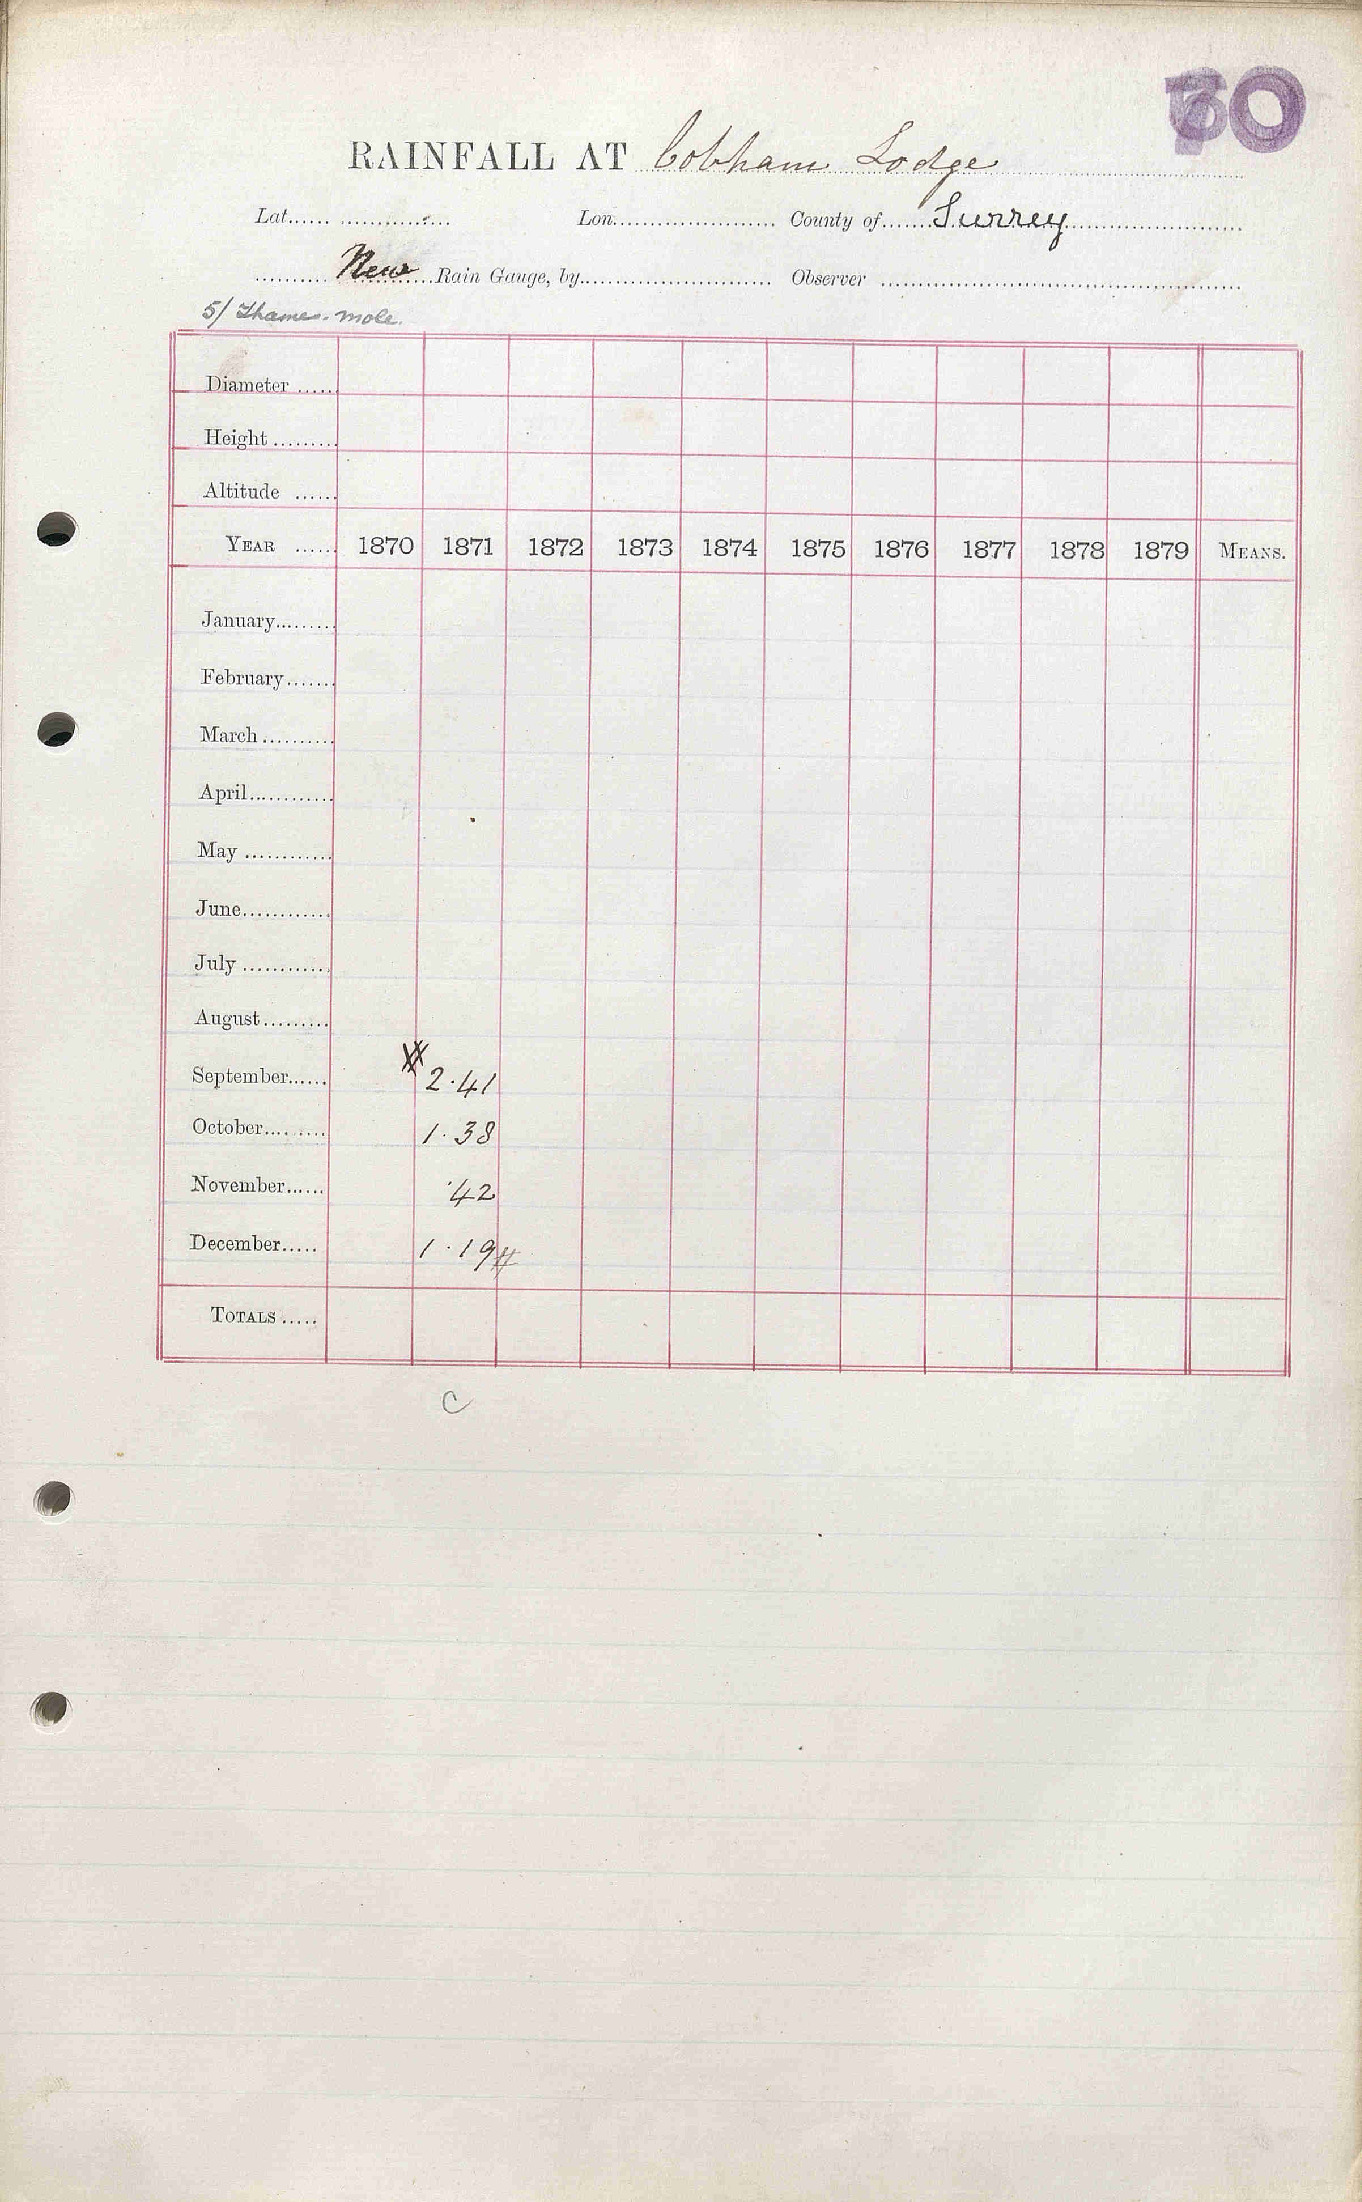 RAINFALL AT Cobham Lodge
Lat. Lon. County of Surrey
New Rain Gauge, by Observer
5/ Thames. mole.
Diameter
Height
Altitude
YEAR 1870 1871 1872 1873 1874 1875 1876 1877 1878 1879 MEANS.
January
February
March
April
May
June
July
August
September 2.41
October 1.38
November .42
December 1.19
TOTALS
C